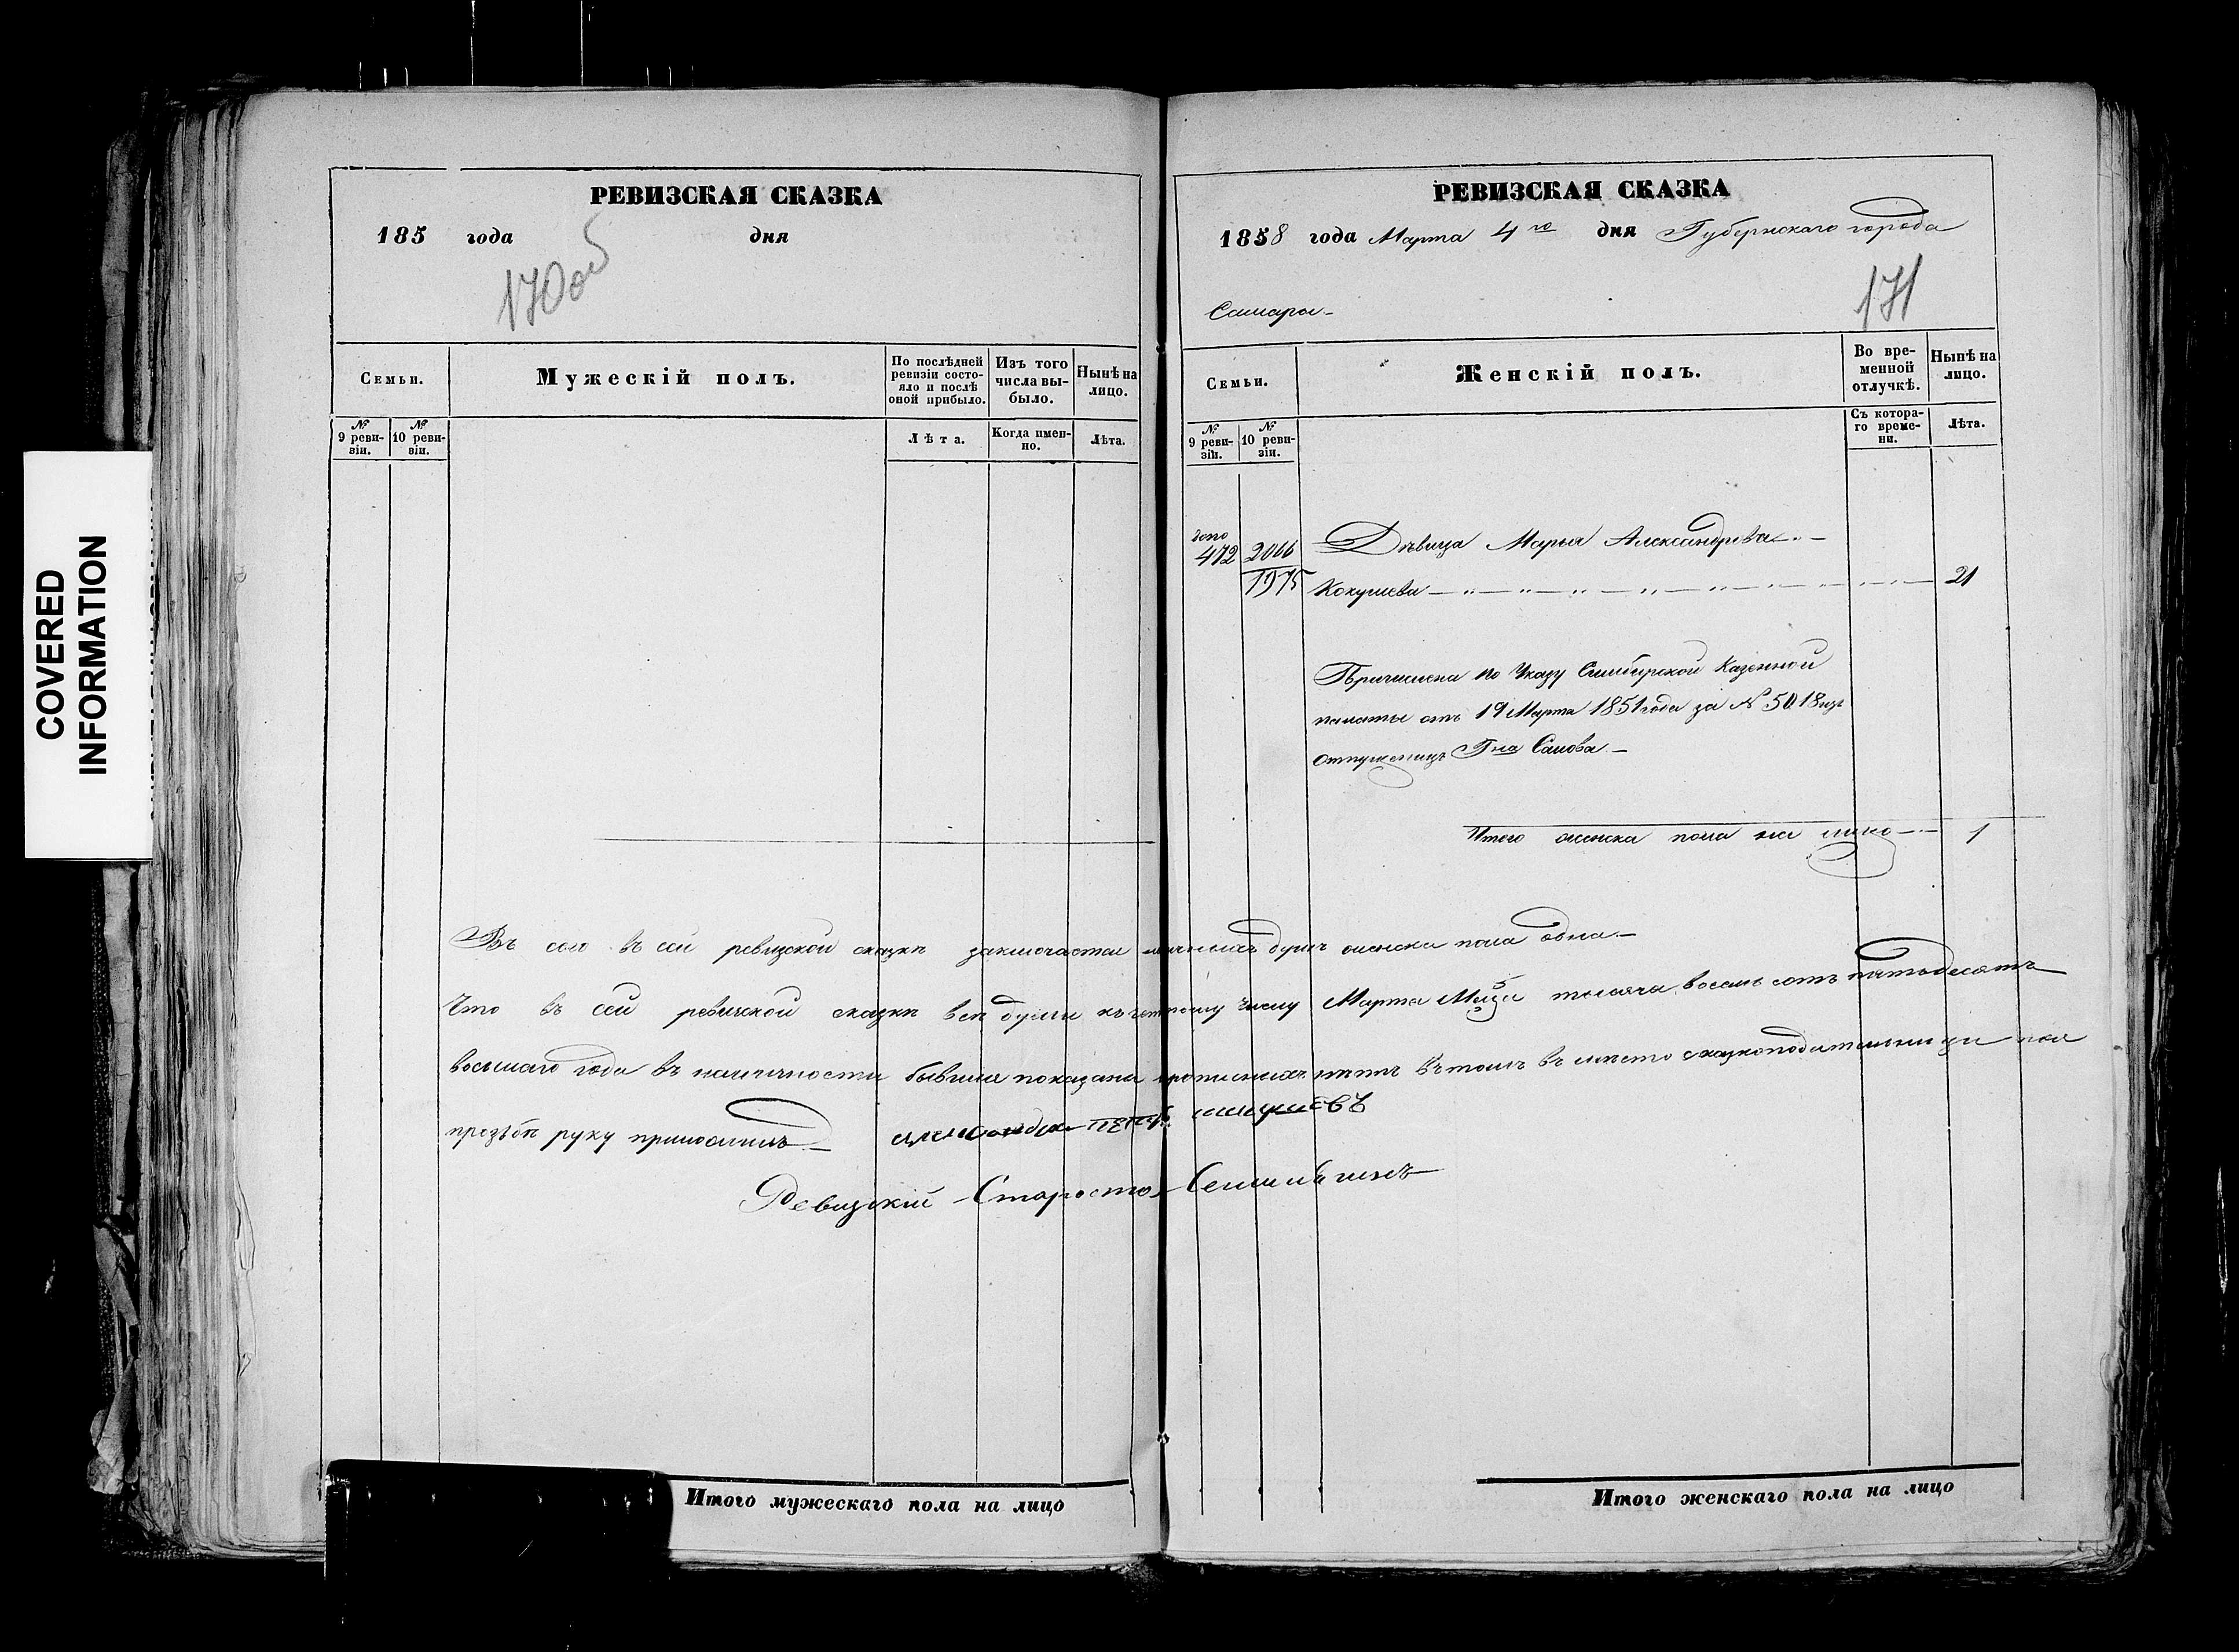 COVERED
INFORMATION
РЕВИЗСКАЯ СКАЗКА
185 года дня
170 об
Семьи.
Мужескій полъ.
По послѣдней ревизіи состояло и послѣ оной прибыло.
Изъ того числа выбыло.
Нынѣ на лицо.
№ 9 ревизіи.
№ 10 ревизіи.
Лѣта.
Когда именно.
Лѣта.
РЕВИЗСКАЯ СКАЗКА
1858 года Марта 4го дня Губернскаго города
171
Самары
Семьи.
Женскій полъ.
Во временной отлучкѣ.
Нынѣ на лицо.
№ 9 ревизіи.
№ 10 ревизіи.
Съ котораго времени.
Лѣта.
472 2066 Дѣвица Марья Александрова
1975 Кокушева 21
Причислена по Указу Симбирской Казенной
палаты отъ 19 Марта 1851 года за № 5018 изъ
отпущеницъ Гна
Итого женска пола на лицо 1
Въ сей ревизской сказкѣ заключается наличныхъ душъ женска пола одна
Что въ сей ревизской сказкѣ всѣ души къ четвертому числу Марта Мца тысяча восемь сотъ пятьдесятъ
восьмаго года въ наличности бывшия показаны прописныхъ нѣтъ въ томъ въ мѣсто сказкоподательницы по ея
прозьбѣ руку приложилъ
Ревизкій Староста
Итого мужескаго пола на лицо
Итого женскаго пола на лицо